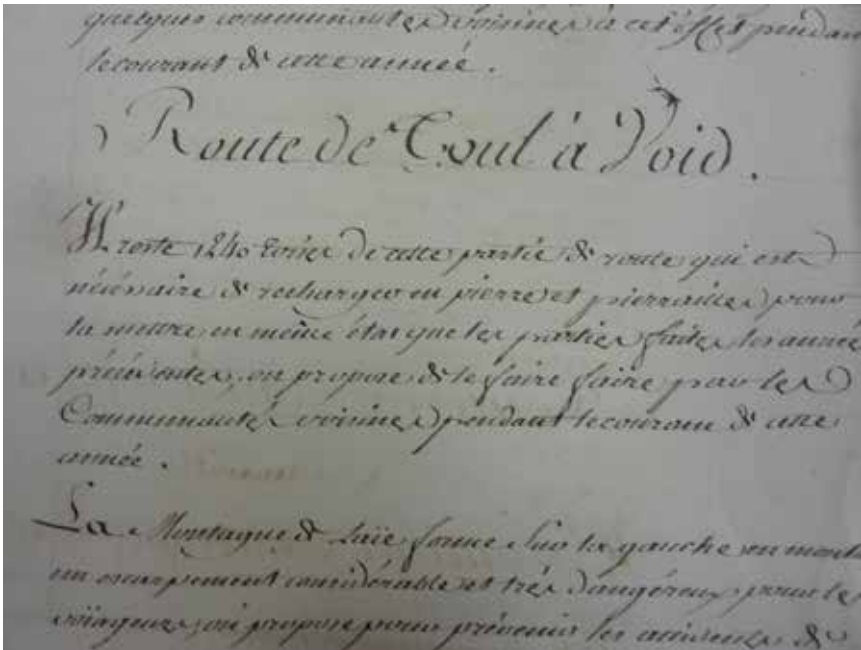 quelques communautés voisines à cet effet pendant
le courant de cette année.
Route de Toul à Void.
Il reste 1240 toises de cette partie de route qui est
nécessaire de recharger en pierre et pierrailles pour
la mettre en même état que les parties faites les années
précédentes, on propose de le faire faire par les
Communautés voisines pendant le courant de cette
année.
La Montagne de Laïe forme sur la gauche en montant
un escarpement considérable et très dangéreux pour les
voïageurs, on propose pour prévenir les accidents de